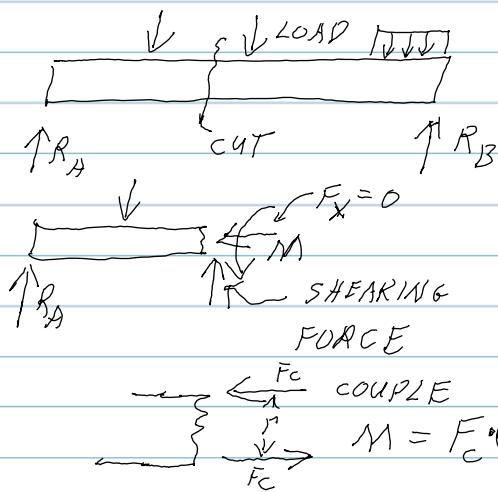 LOAD
R_A CUT R_B
F_x = 0
M
R_A SHEARING
FORCE
F_C COUPLE
r M = F_C •
F_C